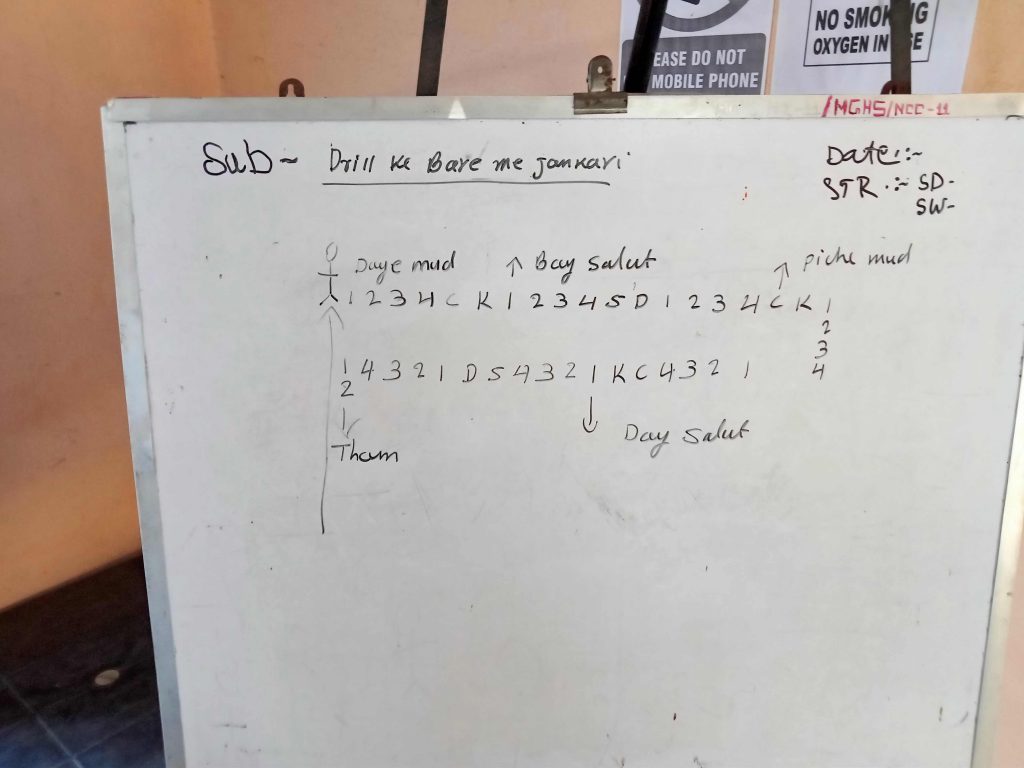 NO SMOKING
OXYGEN IN USE
EASE DO NOT
MOBILE PHONE
/MGHS/NCC-11
Sub ~ Drill ke Bare me Jankari
Date:-
STR.:- SD-
SW-
Daye mud ↑ Bay Salut ↑ piche mud
1 2 3 4 C K 1 2 3 4 S D 1 2 3 4 C K 1
2
3
4
1 4 3 2 1 D S 4 3 2 1 K C 4 3 2 1
2
↓ Day Salut
Tham